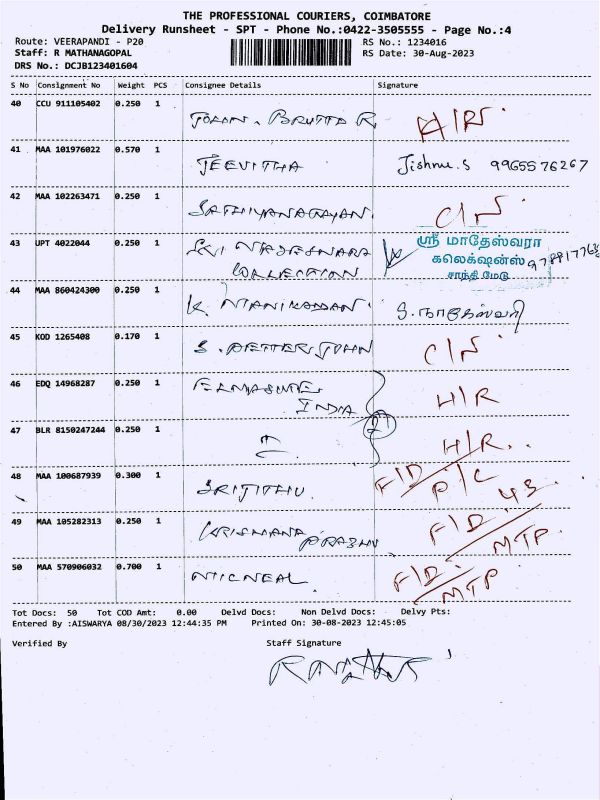 THE PROFESSIONAL COURIERS, COIMBATORE
Delivery Runsheet - SPT - Phone No.:0422-3505555 - Page No.:4
Route: VEERAPANDI - P20 RS No.: 1234016
Staff: R MATHANAGOPAL RS Date: 30-Aug-2023
DRS No.: DCJB123401604
S No Consignment No Weight PCS Consignee Details Signature
40 CCU 911105402 0.250 1 H/R
41 MAA 101976022 0.570 1 JEEVITHA Jishnu.S 9965576267
42 MAA 102263471 0.250 1 SATHIYANARAYAN C/N
43 UPT 4022044 0.250 1 ஸ்ரீ மாதேஸ்வரா
COLLECTION கலெக்ஷன்ஸ்
சாந்தி மேடு
44 MAA 860424300 0.250 1 K. MANIKANDAN S. நாகேஸ்வரி
45 KOD 1265408 0.170 1 S. PETTER JOHN C/N
46 EDQ 14968287 0.250 1 INDIA H/R
47 BLR 8150247244 0.250 1 H/R..
48 MAA 100687939 0.300 1 SRIJITHU F/D P/C
49 MAA 105282313 0.250 1 KRISHANA PRABHU F/D 43 MTP.
50 MAA 570906032 0.700 1 F/D. MTP
Tot Docs: 50 Tot COD Amt: 0.00 Delvd Docs: Non Delvd Docs: Delvy Pts:
Entered By :AISWARYA 08/30/2023 12:44:35 PM Printed On: 30-08-2023 12:45:05
Verified By Staff Signature